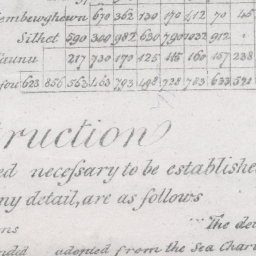 embewghewn 670 362 130 170 412 70 45
Silhet 590 300 982 630 790 1032 912
aunu 217 730 170 125 115 160 157 238
fou 623 856 563 463 793 498 728 783 633 521
ruction
ed necessary to be establishe
ny detail, are as follows
ns The de
nded adopted from the Sea Char